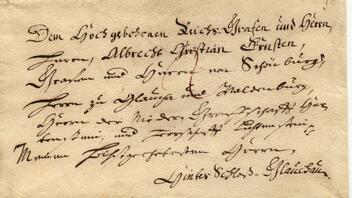 Dem Hochgebohrnen Reichs-Grafen und Herrn,
Herrn, Albrecht Christian Ernsten,
Grafen und Herren von Schönburg,
Herrn zu Glauchau und Waldenburg,
Herrn der Niedern Graffschafft Har-
tenstein, und Herrschafft Lichtenstein
Meinem Herrn,
Hinter Schloß-Glauchau.